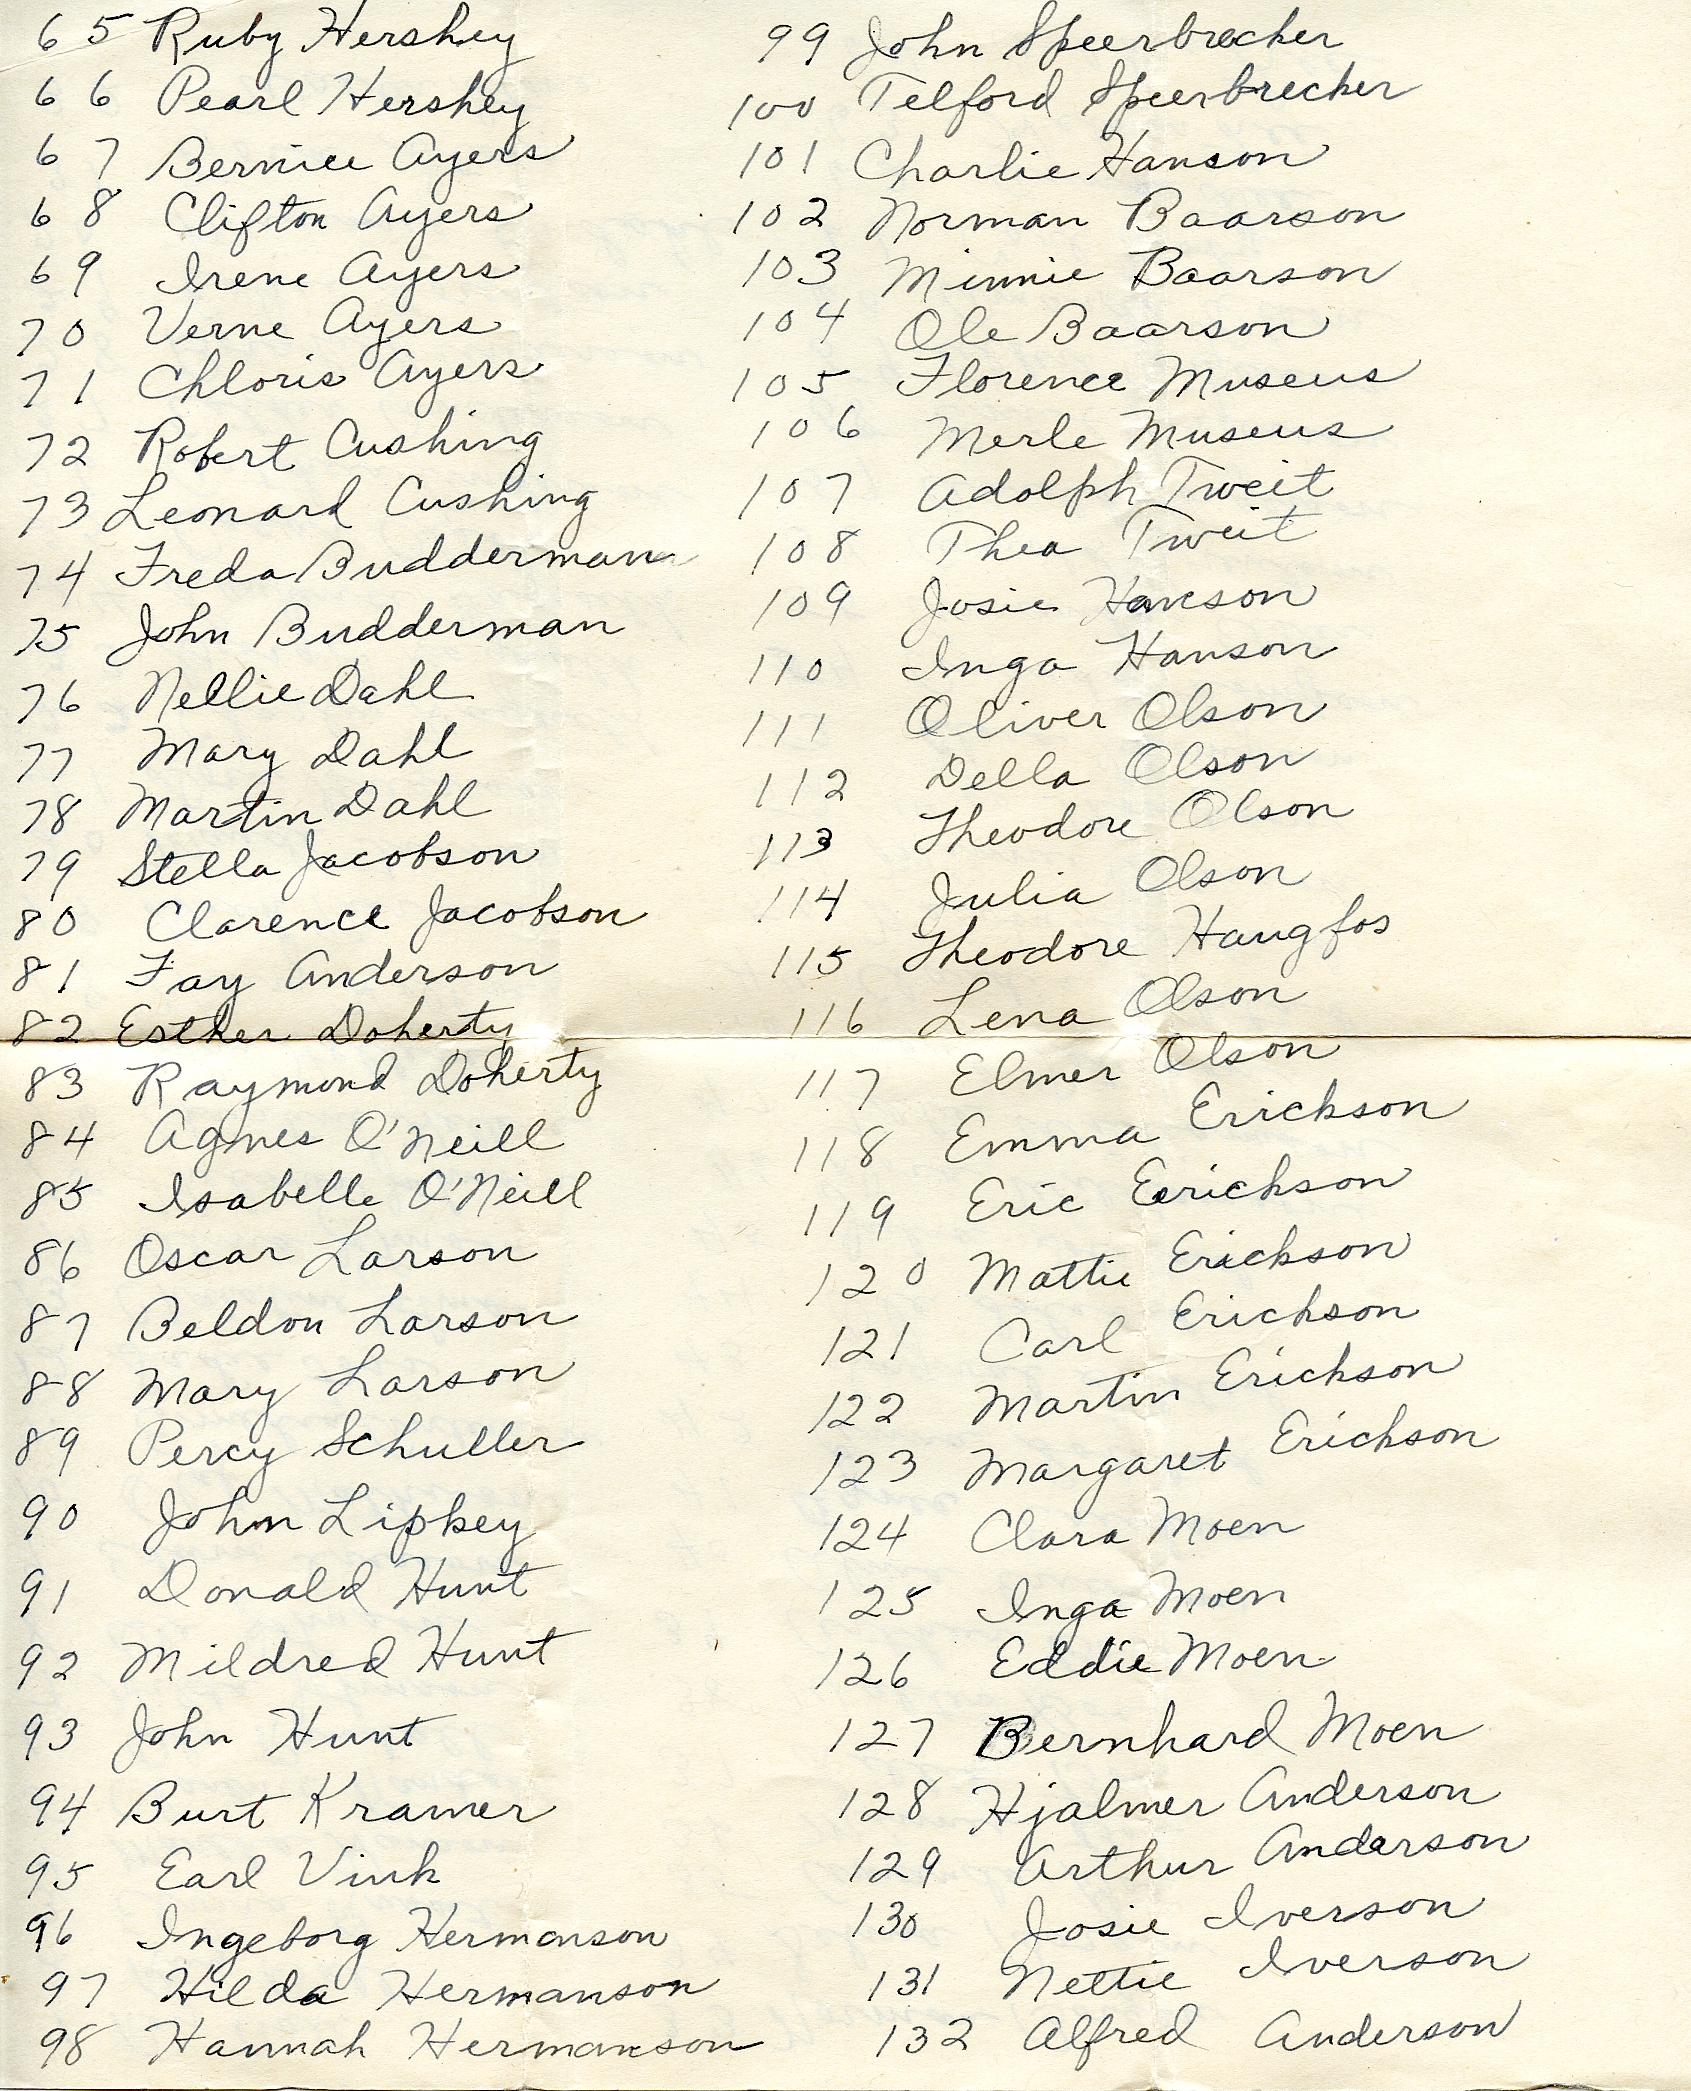 65 Ruby Hershey
66 Pearl Hershey
67 Bernice Ayers
68 Clifton Ayers
69 Irene Ayers
70 Verne Ayers
71 Chloris Ayers
72 Robert Cushing
73 Leonard Cushing
74 Freda Budderman
75 John Budderman
76 Nellie Dahl
77 Mary Dahl
78 Martin Dahl
79 Stella Jacobson
80 Clarence Jacobson
81 Fay Anderson
82 Esther Doherty
83 Raymond Doherty
84 Agnes O'Neill
85 Isabelle O'Neill
86 Oscar Larson
87 Beldon Larson
88 Mary Larson
89 Percy Schuller
90 John Lipkey
91 Donald Hunt
92 Mildred Hunt
93 John Hunt
94 Burt Kramer
95 Earl Vink
96 Ingeborg Hermanson
97 Hilda Hermanson
98 Hannah Hermanson
99 John Speerbrecker
100 Telford Speerbrecker
101 Charlie Hanson
102 Norman Baarson
103 Minnie Baarson
104 Ole Baarson
105 Florence Museus
106 Merle Museus
107 Adolph Tweit
108 Thea Tweit
109 Josie Hanson
110 Inga Hanson
111 Oliver Olson
112 Della Olson
113 Theodore Olson
114 Julia Olson
115 Theodore Haugfos
116 Lena Olson
117 Elmer Olson
118 Emma Erickson
119 Eric Eerickson
120 Mattie Erickson
121 Carl Erickson
122 Martin Erickson
123 Margaret Erickson
124 Clara Moen
125 Inga Moen
126 Eddie Moen
127 Bernhard Moen
128 Hjalmer Anderson
129 Arthur Anderson
130 Josie Iverson
131 Nettie Iverson
132 Alfred Anderson